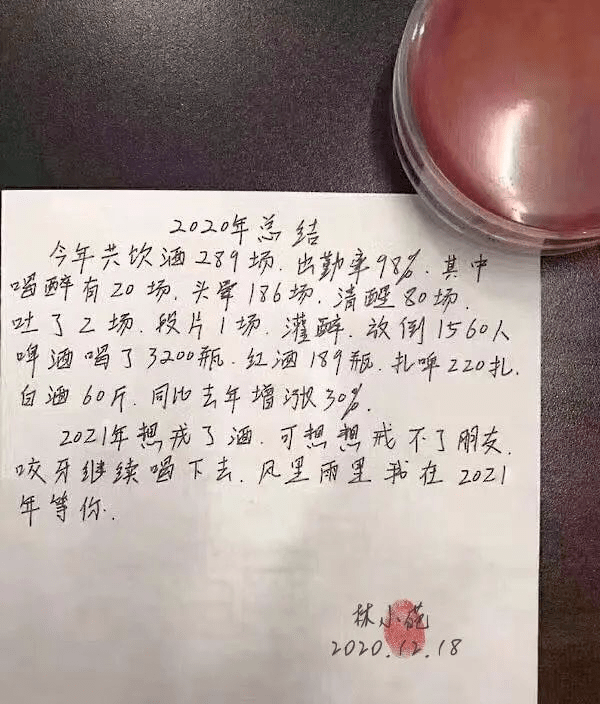 2020年总结
今年共饮酒289场.出勤率98%.其中
喝醉有20场.头晕186场.清醒80场.
吐了2场.段片1场.灌醉.放倒1560人
啤酒喝了3200瓶.红酒189瓶.扎啤220扎.
白酒60斤.同比去年增涨30%.
2021年想戒了酒.可想想戒不了朋友.
咬牙继续喝下去.风里雨里我在2021
年等你.
林小苑
2020.12.18